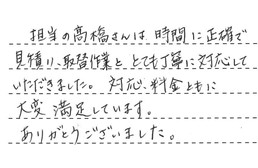 担当の高橋さんは時間に正確で
見積り、取替作業と、とても丁寧に対応して
いただきました。対応、料金ともに
大変満足しています。
ありがとうございました。